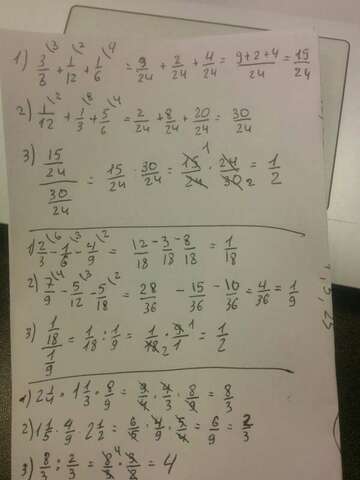 1) 3/3 \3 + 1/12 \2 + 1/6 \4 = 9/24 + 2/24 + 4/24 = (9+2+4)/24 = 15/24
2) 1/12 \2 + 1/3 \8 + 5/6 \4 = 2/24 + 8/24 + 20/24 = 30/24
3) (15/24)/(30/24) = 15/24 : 30/24 = 15/24 · 24/30 = 1/2
1) 2/3 \6 - 1/6 \3 - 4/9 \2 = 12/18 - 3/18 - 8/18 = 1/18
2) 7/9 \4 - 5/12 \3 - 5/18 \2 = 28/36 - 15/36 - 10/36 = 4/36 = 1/9
3) (1/18)/(1/9) = 1/18 : 1/9 = 1/18 · 9/1 = 1/2
2 1/4 · 1 1/3 · 8/9 = 9/4 · 4/3 · 8/9 = 8/3
2) 1 1/5 · 4/9 · 2 1/2 = 6/5 · 4/9 · 5/4 = 6/9 = 2/3
3) 8/3 : 2/3 = 8/3 · 3/2 = 4